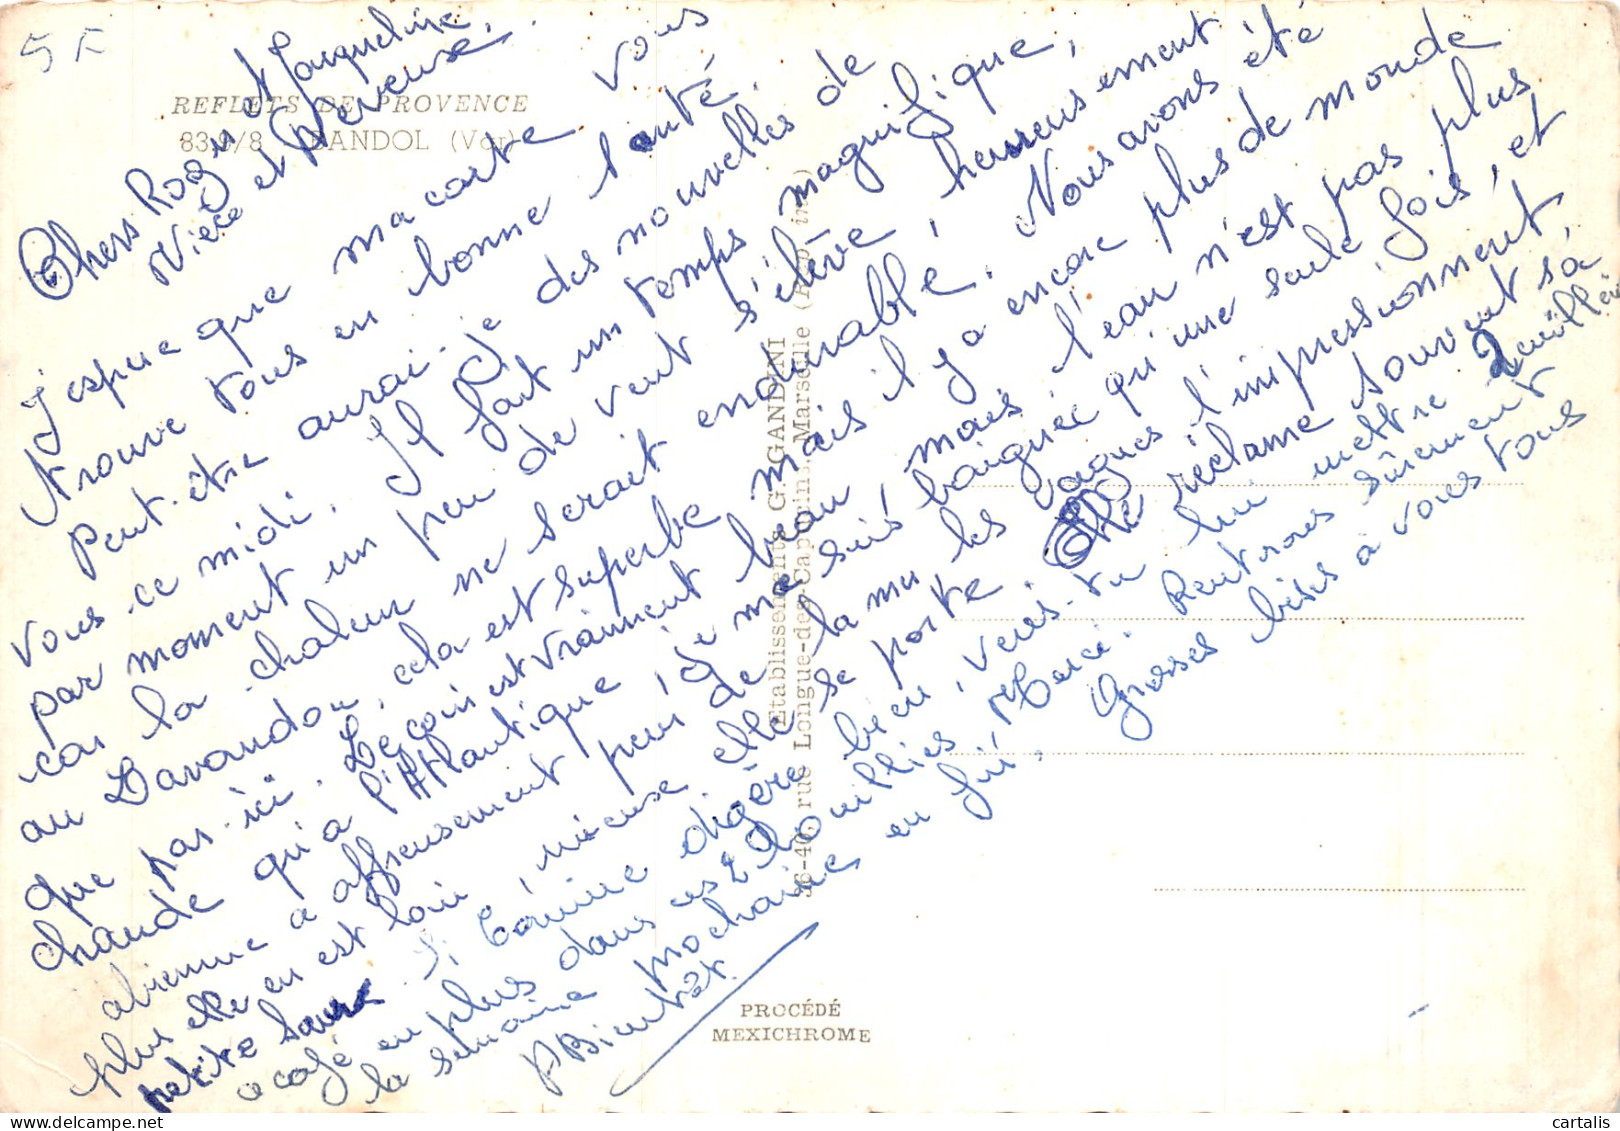 5 F
REFLETS DE PROVENCE
83 /8 BANDOL (Var)
Chers Roger et Jacqueline
Nièce et Neveuse.
J'espère que ma carte vous
trouve tous en bonne santé.
Peut-être aurai-je des nouvelles de
vous ce midi. Il fait un temps magnifique,
par moment un peu de vent s'élève, heureusement
car la chaleur ne serait endurable. Nous avons été
au Lavandou, cela est superbe mais il y a encore plus de monde
que par ici. Le coin est vraiment beau, mais l'eau n'est pas plus
chaude qu'à l'Atlantique, je me suis baignée qu'une seule fois, et
affreusement peur de la mer, les vagues l'impressionnent,
plus elle en est loin, mieuse elle se porte. Elle réclame souvent sa
petite soeur. Si digère bien, veux-tu lui mettre 2 cuillè
à café en plus dans ses 2 bouillies, Merci. Rentrons sûrement
la semaine prochaine, en fui. Grosses bises à vous tous
Bientôt.
Etablissements G. GANDINI
36-40, rue Longue-des-Capucins, Marseille (Rep. int.)
PROCÉDÉ
MEXICHROME
cartalis